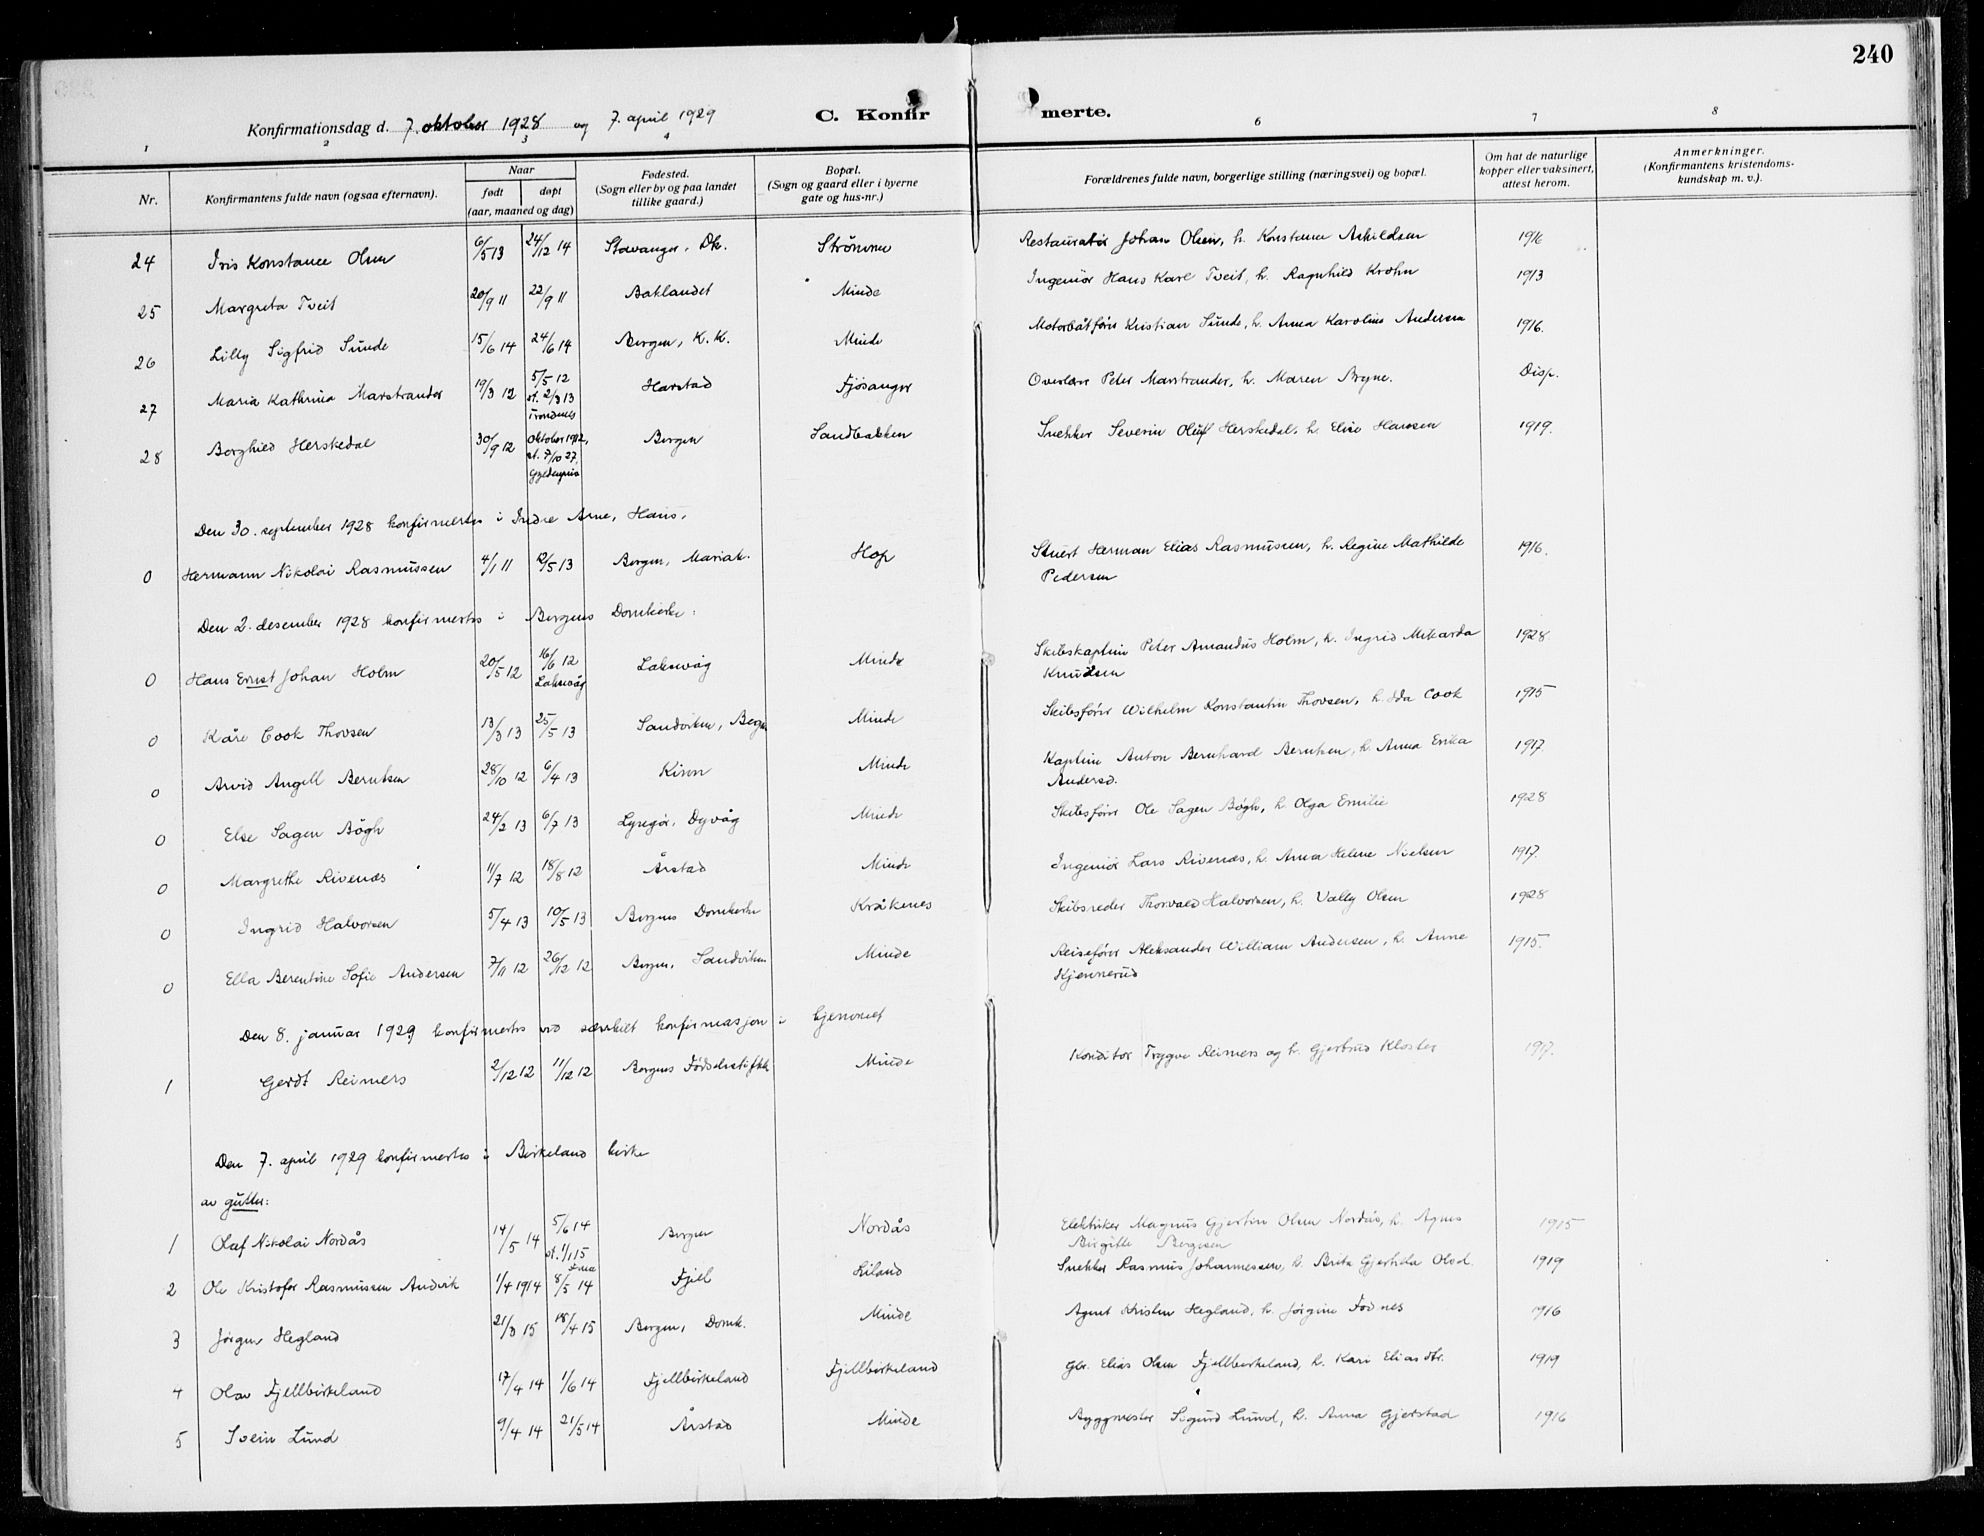 240
Konfirmationsdag d. 7. oktober 1928 og 7. april 1929 C. Konfirmerte.
1 2 3 4 6 7 8
Nr. Konfirmantens fulde navn (ogsaa efternavn). Naar født døpt (aar, maaned og dag) Fødested. (Sogn eller by og paa landet tillike gaard.) Bopæl. (Sogn og gaard eller i byerne gate og hus-nr.) Forældrenes fulde navn, borgerlige stilling (næringsvei) og bopæl. Om hat de naturlige kopper eller vaksinert, attest herom. Anmerkninger. (Konfirmantens kristendomskundskap m. v.).
24 Iris Konstance Olsen 6/5 13 24/12 14 Stavanger, Dk. Strömme Restauratör Johan Olsen, h. Konstance Askildsen 1916
25 Margreta Tveit 20/9 11 22/9 11 Baklandet Minde Ingeniör Hans Karl Tveit, h. Ragnhild Krohn 1913
26 Lilly Sigfrid Sunde 15/6 14 24/6 14 Bergen, K.K. Minde Motorbåtförer Kristian Sunde, h. Anna Karoline Andersen 1916.
27 Maria Kathrina Marstrander 19/3 12 5/5 12 st. 2/3 13 Trondenes Harstad Fjösanger Overlærer Peter Marstrander, h. Maren Bryne. Disp.
28 Borghild Herskedal 30/9 12 Oktober 1912, st. 7/10 27, Gyldenpris Bergen Sandbakken Snekker Severin Oluf Herskedal, h. Elise Hansen 1919.
Den 30. september 1928 konfirmertes i Indre Arne, Haus,
0 Hermann Nikolai Rasmussen 4/1 11 12/5 13 Bergen, Mariak. Hop Stuert Herman Elias Rasmussen, h. Regine Mathilde 1916.
Pedersen
Den 2. desember 1928 konfirmertes i Bergens Domkirke:
0 Hans Ernst Johan Holm 20/5 12 16/6 12 Laksevåg Laksevåg Minde Skibskaptein Peter Amandus Holm, h. Ingrid Mikarda 1928
Knudsen
0 Kåre Cook Thovsen 13/3 13 25/5 13 Sandviken, Bergen Minde Skibsförer Wilhelm Konstantin Thovsen, h. Ida Cook 1915
0 Arvid Angell Berntsen 28/10 12 6/4 13 Kinn Minde Kaptein Anton Bernhard Berntsen, h. Anna Erika 1917.
Andersd.
0 Else Sagen Bögh 24/2 13 6/7 13 Lyngör, Dyvåg Minde Skibsförer Ole Sagen Bögh, h. Olga Emilie 1928
0 Margrethe Rivenæs 11/7 12 18/8 12 Årstad Minde Ingeniör Lars Rivenæs, h. Anna Helene Nielsen 1917.
0 Ingrid Halvorsen 5/4 13 10/5 13 Bergens Domkirke Kråkenes Skibsreder Thorvald Halvorsen, h. Vally Olsen 1928
0 Ella Berentine Sofie Andersen 7/11 12 26/12 12 Bergen, Sandviken Minde Reiseförer Aleksander William Andersen, h. Anne 1915.
Kjennerud
Den 8. januar 1929 konfirmertes ved særskilt konfirmasjon i hjemmet
1 Gerdt Reimers 2/12 12 11/12 12 Bergens Födselsstiftelse Minde Konditor Trygve Reimers og h. Gjertrud Kloster 1917.
Den 7. april 1929 konfirmertes i Birkeland kirke
av gutter:
1 Olaf Nikolai Nordås 14/5 14 5/6 14 st. 1/1 15 Fana Bergen Nordås Elektriker Magnus Gjertin Olsen Nordås, h. Agnes 1915
Birgitte Bergesen
2 Ole Kristofer Rasmussen Andvik 1/4 1914 8/5 14 Fjell Liland Snekker Rasmus Johannessen, h. Brita Gjertrda Olsd. 1919
3 Jörgen Hegland 21/3 15 18/4 15 Bergen, Domk. Minde Agent Kristen Hegland, h. Jörgine Fodnes 1916
4 Olav Fjellbirkeland 17/4 14 1/6 14 Fjellbirkeland Fjellbirkeland Gbr. Elias Olsen Fjellbirkeland, h. Kari Eliasdtr. 1919
5 Svein Lund 9/4 14 21/5 14 Årstad Minde Byggmester Sigurd Lund, h. Anna Gjerstad 1916